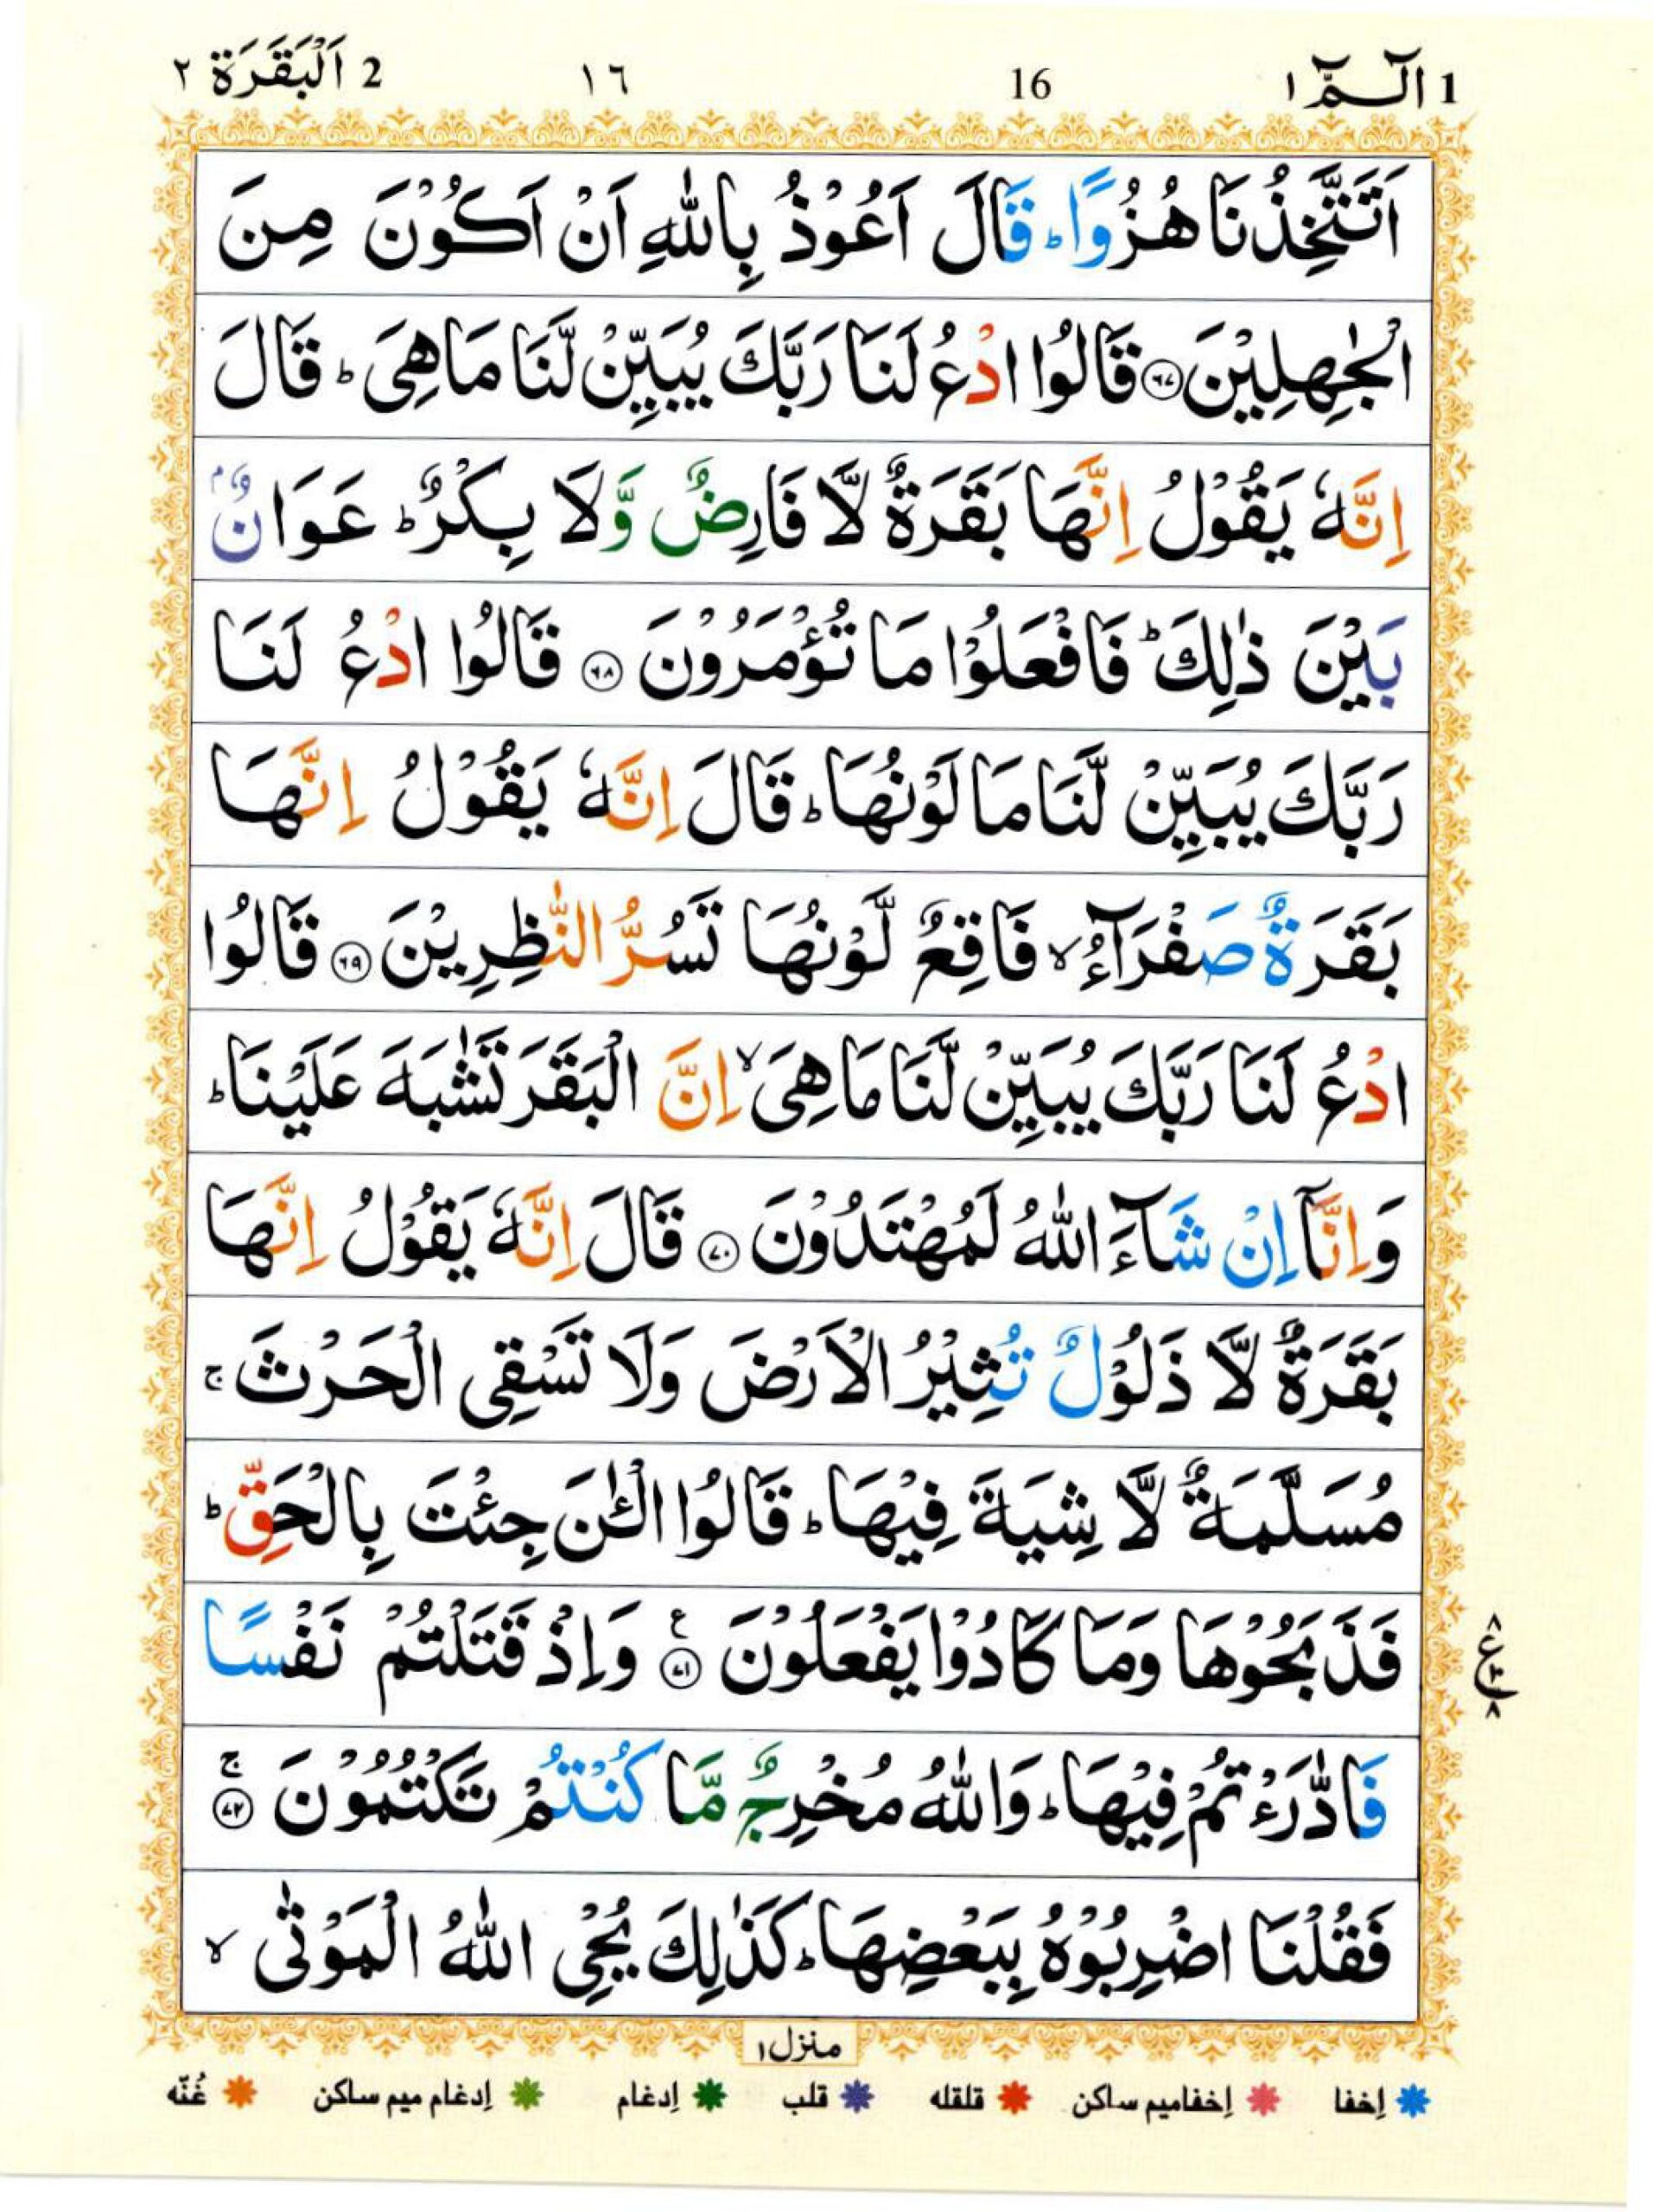 1 الٓـمّٓ ١ 16 ١٦ 2 اَلْبَقَرَة ٢
اَتَتَّخِذُنَا هُزُوًا ؕ قَالَ اَعُوْذُ بِاللّٰهِ اَنْ اَكُوْنَ مِنَ
الْجٰهِلِيْنَ ۝۶۷ قَالُوا ادْعُ لَنَا رَبَّكَ يُبَيِّنْ لَّنَا مَا هِىَ ؕ قَالَ
اِنَّهٗ يَقُوْلُ اِنَّهَا بَقَرَةٌ لَّا فَارِضٌ وَّلَا بِكْرٌ ؕ عَوَانٌۢ
بَيْنَ ذٰلِكَ ؕ فَافْعَلُوْا مَا تُؤْمَرُوْنَ ۝۶۸ قَالُوا ادْعُ لَنَا
رَبَّكَ يُبَيِّنْ لَّنَا مَا لَوْنُهَا ؕ قَالَ اِنَّهٗ يَقُوْلُ اِنَّهَا
بَقَرَةٌ صَفْرَآءُ ۙ فَاقِعٌ لَّوْنُهَا تَسُرُّ النّٰظِرِيْنَ ۝۶۹ قَالُوا
ادْعُ لَنَا رَبَّكَ يُبَيِّنْ لَّنَا مَا هِىَ ۙ اِنَّ الْبَقَرَ تَشٰبَهَ عَلَيْنَا ؕ
وَاِنَّآ اِنْ شَآءَ اللّٰهُ لَمُهْتَدُوْنَ ۝۷۰ قَالَ اِنَّهٗ يَقُوْلُ اِنَّهَا
بَقَرَةٌ لَّا ذَلُوْلٌ تُثِيْرُ الْاَرْضَ وَلَا تَسْقِى الْحَرْثَ ۚ
مُسَلَّمَةٌ لَّا شِيَةَ فِيْهَا ؕ قَالُوا الْـٰٔنَ جِئْتَ بِالْحَقِّ ؕ
فَذَبَحُوْهَا وَمَا كَادُوْا يَفْعَلُوْنَ ۝۷۱ ع وَاِذْ قَتَلْتُمْ نَفْسًا
٨ ع ٨
فَادّٰرَءْتُمْ فِيْهَا ؕ وَاللّٰهُ مُخْرِجٌ مَّا كُنْتُمْ تَكْتُمُوْنَ ۝۷۲ ۚ
فَقُلْنَا اضْرِبُوْهُ بِبَعْضِهَا ؕ كَذٰلِكَ يُحْىِ اللّٰهُ الْمَوْتٰى ۙ
منزل١
إخفا إخفاميم ساكن قلقله قلب إدغام إدغام ميم ساكن غُنّه